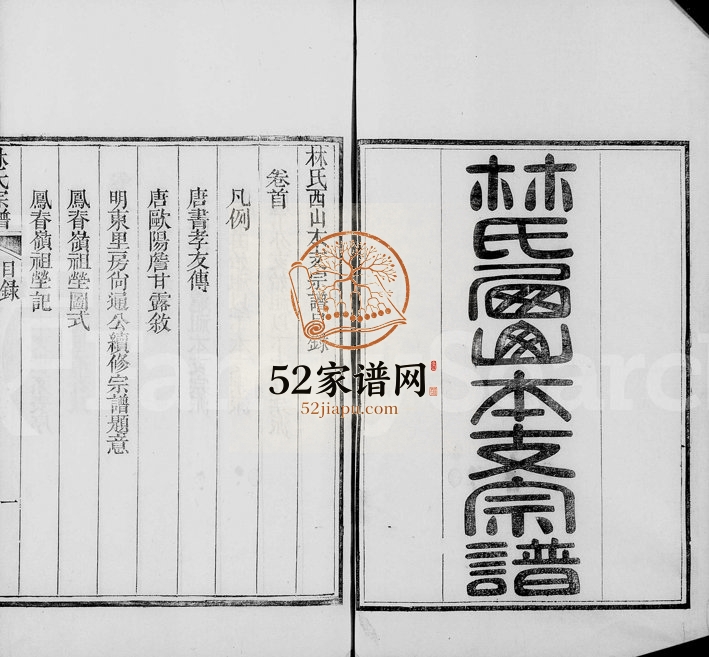 林氏西山本支宗譜
林氏西山本支宗譜目錄
卷首
凡例
唐書孝友傳
唐歐陽詹甘露敘
明東里房尙通公續修宗譜題意
鳳脊嶺祖塋圖式
鳳脊嶺祖塋記
林氏宗譜
目錄
一
52家谱网
52jiapu.com